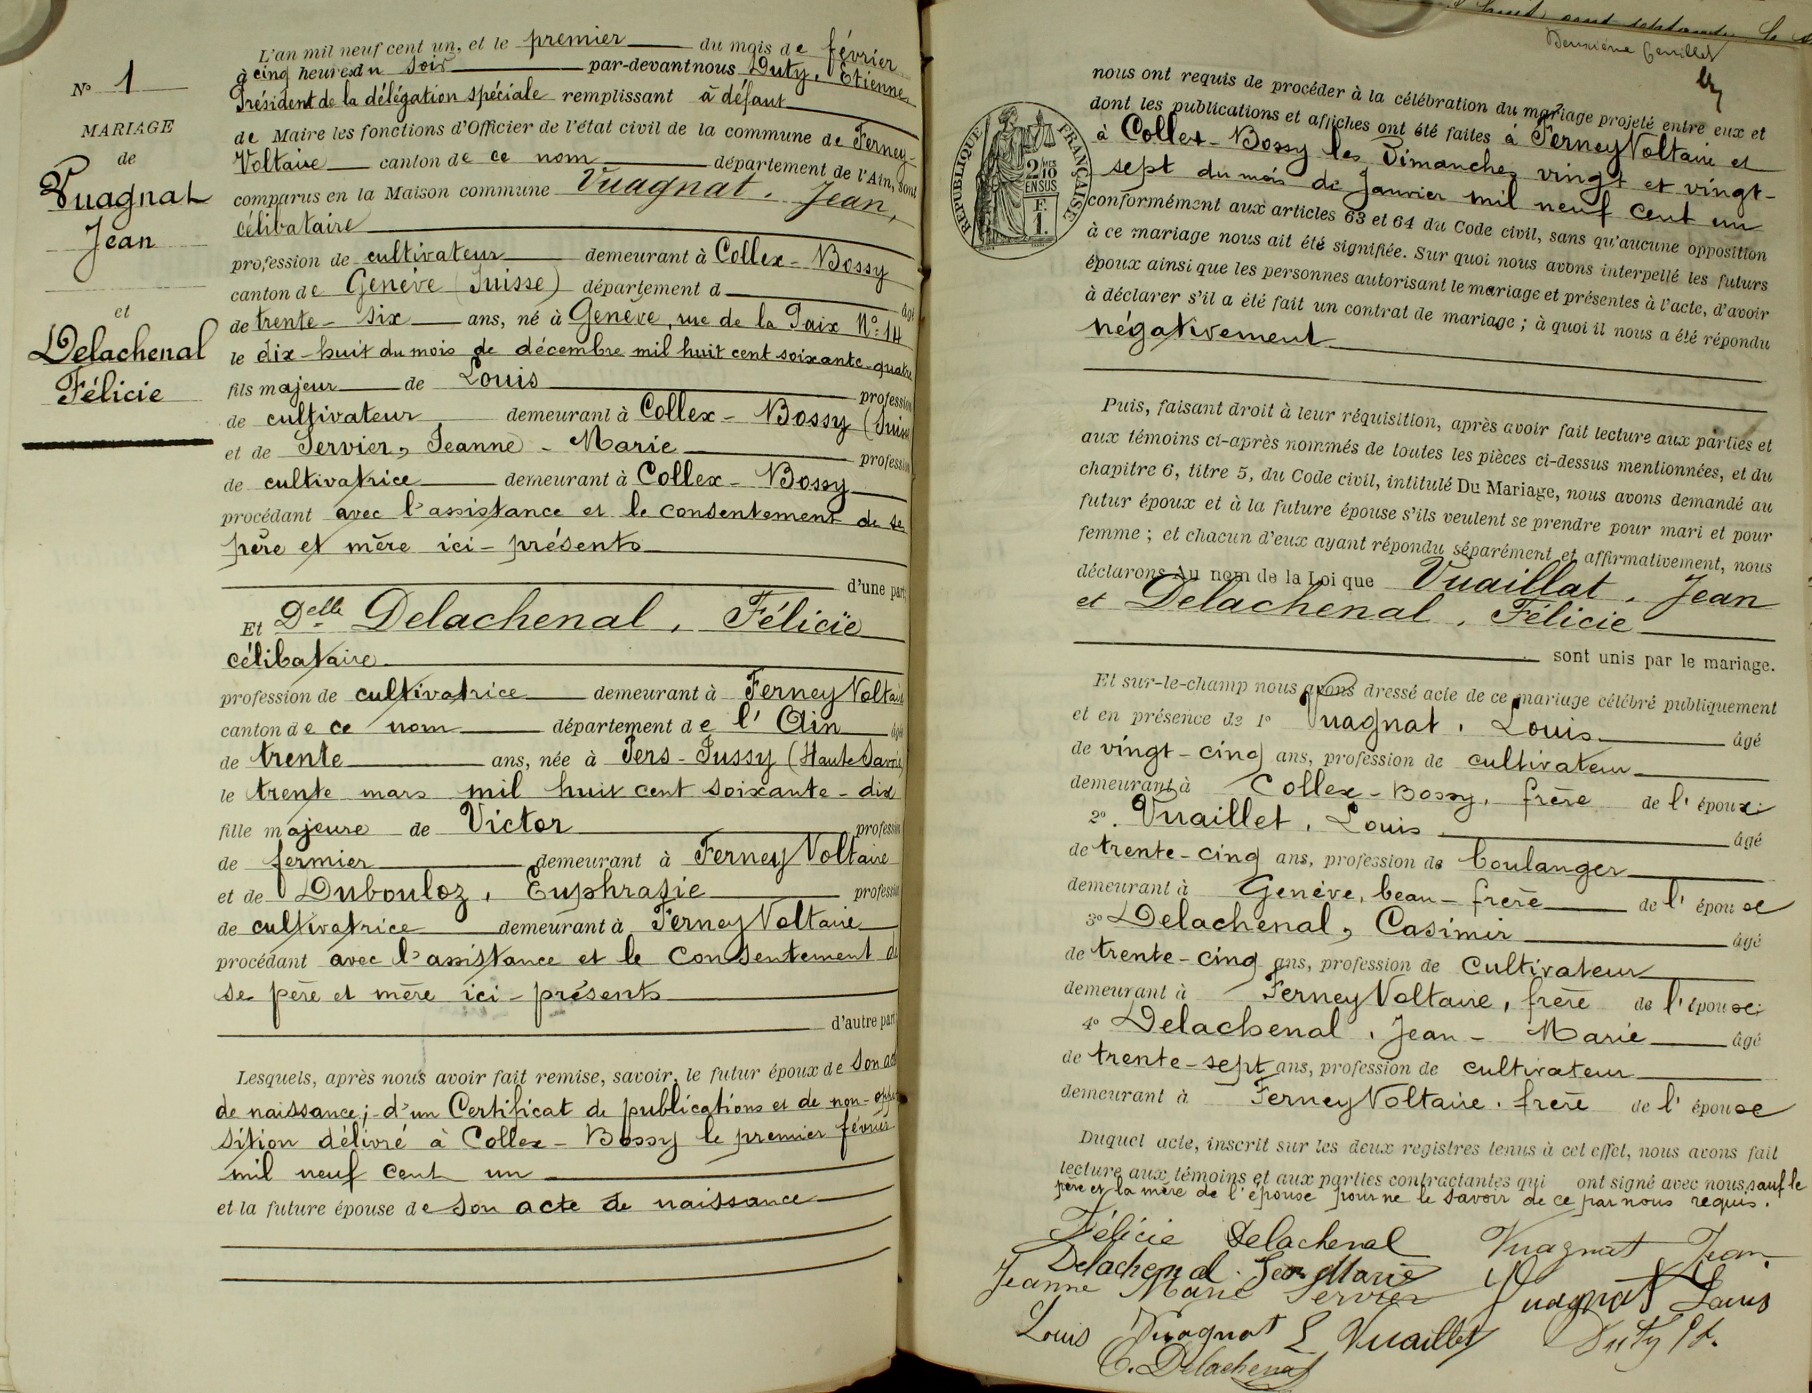 N° 1
MARIAGE
de
Vuagnat
Jean
et
Delachenal
Félicie
L'an mil neuf cent un, et le premier du mois de février
à cinq heures du soir par-devant nous Duty, Etienne
Président de la délégation spéciale remplissant à défaut
de Maire les fonctions d'Officier de l'état civil de la commune de Ferney-
Voltaire canton de ce nom département de l'Ain, sont
comparus en la Maison commune Vuagnat, Jean,
célibataire
profession de cultivateur demeurant à Collex-Bossy
canton de Genève (Suisse) département d âgé
de trente-six ans, né à Genève, rue de la Paix N°: 14
le dix-huit du mois de décembre mil huit cent soixante-quatre
fils majeur de Louis profession
de cultivateur demeurant à Collex-Bossy (Suisse
et de Servier, Jeanne-Marie profession
de cultivatrice demeurant à Collex-Bossy
procédant avec l'assistance et le consentement de se
père et mère ici-présents
d'une part,
Et Delle Delachenal, Félicie
célibataire
profession de cultivatrice demeurant à Ferney Voltaire
canton de ce nom département de l'Ain âgée
de trente ans, née à Pers-Jussy (Haute Savoie)
le trente mars mil huit cent soixante-dix
fille majeure de Victor profession
de fermier demeurant à Ferney Voltaire
et de Dubouloz, Euphrasie profession
de cultivatrice demeurant à Ferney Voltaire
procédant avec l'assistance et le consentement de
se père et mère ici-présents
d'autre part
Lesquels, après nous avoir fait remise, savoir, le futur époux de son acte
de naissance; d'un Certificat de publications et de non-oppo
sition délivré à Collex-Bossy le premier février
mil neuf cent un
et la future épouse de son acte de naissance
Deuxième feuillet
RÉPUBLIQUE FRANÇAISE
2/10
EN SUS
F.
1.
nous ont requis de procéder à la célébration du mariage projeté entre eux et
dont les publications et affiches ont été faites à Ferney Voltaire et
à Collex-Bossy les Dimanches vingt et vingt-
sept du mois de Janvier mil neuf cent un
conformément aux articles 63 et 64 du Code civil, sans qu'aucune opposition
à ce mariage nous ait été signifiée. Sur quoi nous avons interpellé les futurs
époux ainsi que les personnes autorisant le mariage et présentes à l'acte, d'avoir
à déclarer s'il a été fait un contrat de mariage; à quoi il nous a été répondu
négativement
Puis, faisant droit à leur réquisition, après avoir fait lecture aux parties et
aux témoins ci-après nommés de toutes les pièces ci-dessus mentionnées, et du
chapitre 6, titre 5, du Code civil, intitulé Du Mariage, nous avons demandé au
futur époux et à la future épouse s'ils veulent se prendre pour mari et pour
femme; et chacun d'eux ayant répondu séparément et affirmativement, nous
déclarons Au nom de la Loi que Vuaillat, Jean
et Delachenal, Félicie
sont unis par le mariage.
Et sur-le-champ nous avons dressé acte de ce mariage célébré publiquement
et en présence de 1° Vuagnat, Louis âgé
de vingt-cinq ans, profession de cultivateur
demeurant à Collex-Bossy, frère de l'époux;
2°. Vuaillet, Louis âgé
de trente-cinq ans, profession de boulanger
demeurant à Genève, beau-frère de l'épouse
3° Delachenal, Casimir âgé
de trente-cinq ans, profession de Cultivateur
demeurant à Ferney Voltaire, frère de l'épouse;
4° Delachenal, Jean-Marie âgé
de trente-sept ans, profession de cultivateur
demeurant à Ferney Voltaire, frère de l'épouse
Duquel acte, inscrit sur les deux registres tenus à cet effet, nous avons fait
lecture aux témoins et aux parties contractantes qui ont signé avec nous, sauf le
père et la mère de l'épouse pour ne le savoir de ce par nous requis.
Félicie Delachenal Vuagnat Jean
Delachenal Jean Marie
Jeanne Marie Servier Vuagnat Louis
Louis Vuagnat L Vuaillet Duty Et.
C. Delachenal